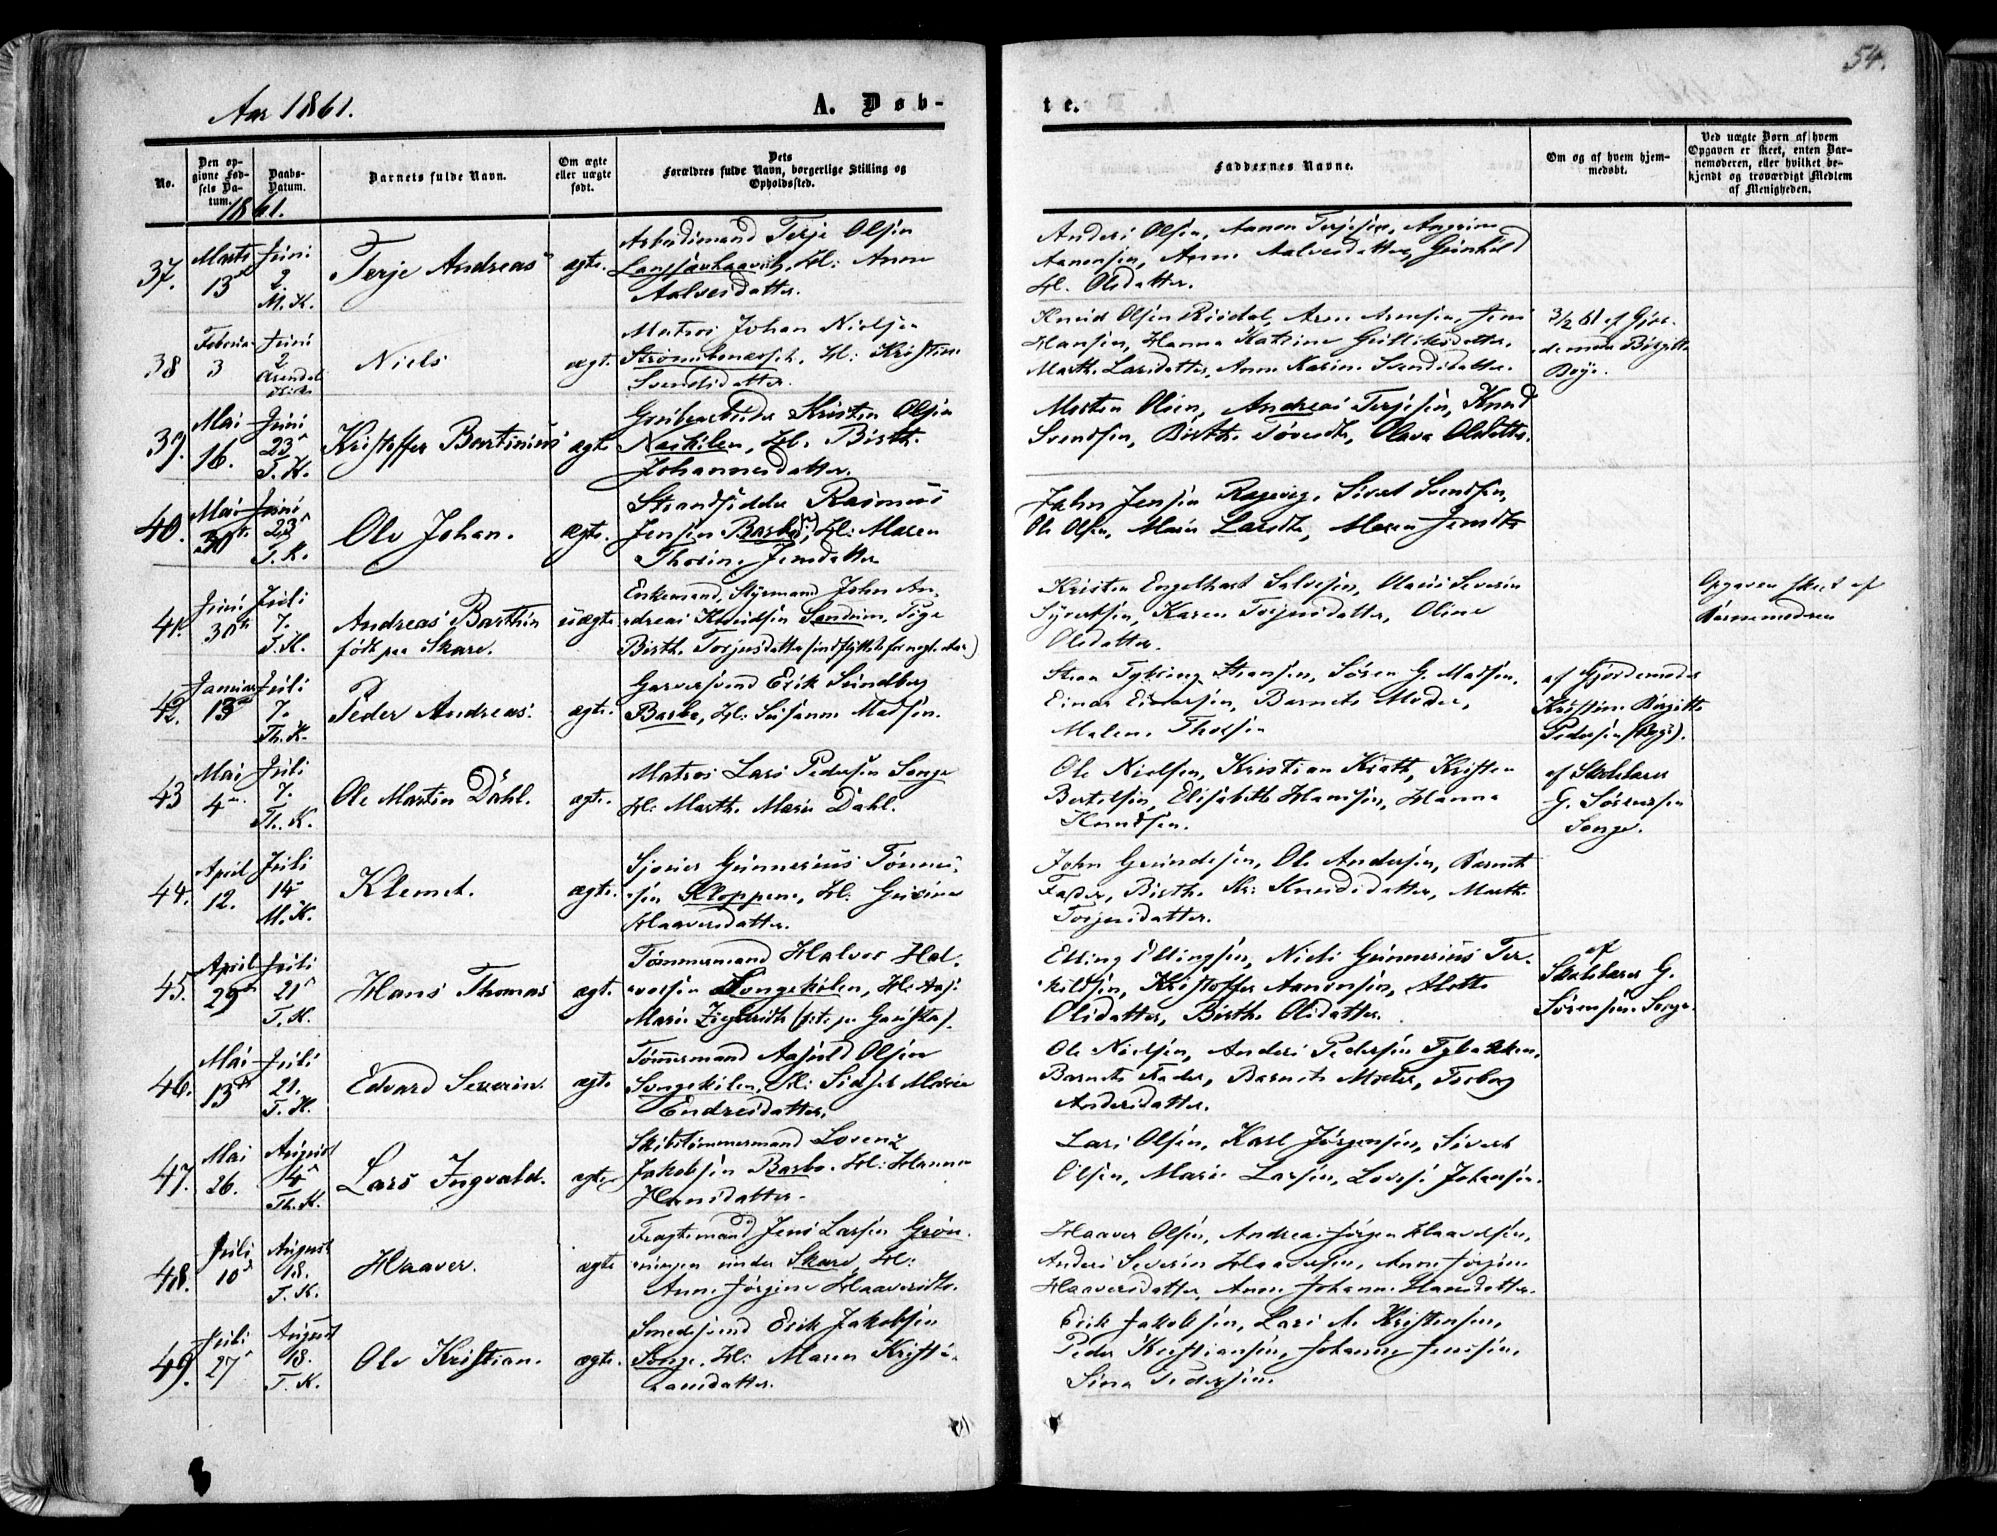 54.
Aar 1861.
A. Døb-
te.
No.
Den op-
givne Fød-
sels Da-
tum.
Daabs-
Datum.
Barnets fulde Navn.
Om ægte
eller uægte
født.
Dets
Forældres fulde Navn, borgerlige Stilling og
Opholdssted.
Faddernes Navne.
Om og af hvem hjem-
medøbt.
Ved uægte Børn af hvem
Opgaven er skeet, enten Bar-
nemoderen, eller hvilket be-
kjendt og troværdigt Medlem
af Menigheden.
1861.
37.
Marts
13
Juni
2.
M. K.
Terje Andreas
ægte.
Arbeidsmand Terje Olsen
H: Anne
Aalvesdatter.
Anders Olsen, Aanon Terjesen,
Aanonsen, Anne Aalvesdatter, Gunhild
H. Olsdatter.
38
Februar
3
Juni
2
Arendals
Kirke
Niels
ægte.
Matros Johan Nielsen
H: Kristine
Svendsdatter.
Knud Olsen Arne Arnesen, Jens
Hansen, Hanna Katrine
Marth. Larsdatter, Anne Karine Svendsdatter.
3/2 61 af Gjor-
demoder Birgitte
Boye.
39.
Mai
16.
Juni
23
T. K.
Kristoffer Bertinius
ægte
Grubearbeider Kristen Olsen
Naskilen, H. Birth.
Johannesdatter.
Morten Olsen, Andreas Terjesen, Knud
Svendsen, Birthe Olava Olsdatter.
40.
Mai
30
Juni
23
T. K.
Ole Johan.
ægte.
Strandsidder Rasmus
Jensen Barbo, H: Maren
Thorine Jensdatter
John Jensen Sivert Svendsen,
Ole Olsen, Maren Larsdt, Maren Jensdt
41.
Juni
30
Juli
7.
T. K.
Andreas Barthin
født paa Skare.
uægte
Enkemand, Styrmand John An-
dreas Knudsen Sandum, Pige
Birth. Torjusdatter
Kristen Engelhart Salvesen, Olaus Severin
Syvertsen, Karen Torjusdatter, Oline
Olsdatter.
Opgaven skeet af
Barnemodren
42.
Januar
13
Juli
7.
Th. K.
Peder Andreas.
ægte.
Garversvend Erik Sundberg
Barbo, H: Susanne Madsen.
Søren G. Madsen,
Einar Barnets Moder,
Malene
af Gjordemoder
Kristine Birgitte
Pedersen (Boye).
43
Mai
4
Juli
7.
Th. K.
Ole Martin Dahl.
ægte.
Matros Lars Pedersen Songe
H: Marth. Marie Dahl.
Ole Nielsen, Kristian Kristen
Bertelsen, Elisabeth Hansen, Hanna
Knudsen.
af Skolelærer
G. Sørensen
Songe.
44.
April
12.
Juli
14
M. K.
Klemet.
ægte.
Gunnerius Tønne-
sen Kloppene, H: Gurine
Haaversdatter.
John Gundesen, Ole Andersen, Barnets
Fader, Birth. Kr: Knudsdatter, Marth.
Torjusdatter.
45.
April
29
Juli
21
T. K.
Hans Thomas
ægte.
Tømmermand Halvor Hal-
vorsen Songekilen, H:
Marie
Elling Ellingsen, Niels Gunnerius Ter-
kildsen, Kristoffer Aanonsen,
Olsdatter, Birthe Olsdatter.
af
Skolelærer G.
Sørensen Songe.
46.
Mai
13
Juli
21.
T. K.
Edvard Severin.
ægte
Tømmermand Olsen
Songekilen, H: Sidsel Marie
Endresdatter.
Ole Nielsen, Anders Pedersen
Barnets Fader, Barnets Moder, Torborg
Andersdatter.
47.
Mai
26.
August
4
Th. K.
Lars Ingvald.
ægte
Skibstømmermand Lorenz
Jakobsen Barbo. H: Hanna
Hansdatter.
Lars Olsen, Karl Jørgensen, Sivert
Olsen, Maria Larsen, Lovise Johansen.
48.
Juli
10
August
18.
T. K.
Haaver.
ægte
Fragtemand Jens Larsen Grøn-
ningen under Skare, H:
Anne Jørgine Haaversdt.
Haaver Olsen, Andreas Jørgen Haaversen,
Anders Severin Haaversen, Anne Jørgine
Haaversdatter, Anne Johanne Hansdatter.
49.
Juli
27
August
18.
T. K.
Ole Kristian.
ægte.
Smedsvend Erik Jakobsen
Songe. H: Maren Kristi-
ansdatter.
Erik Jakobsen, Lars M. Kristensen,
Peder Kristiansen, Johanne Jensen,
Sina Pedersen.